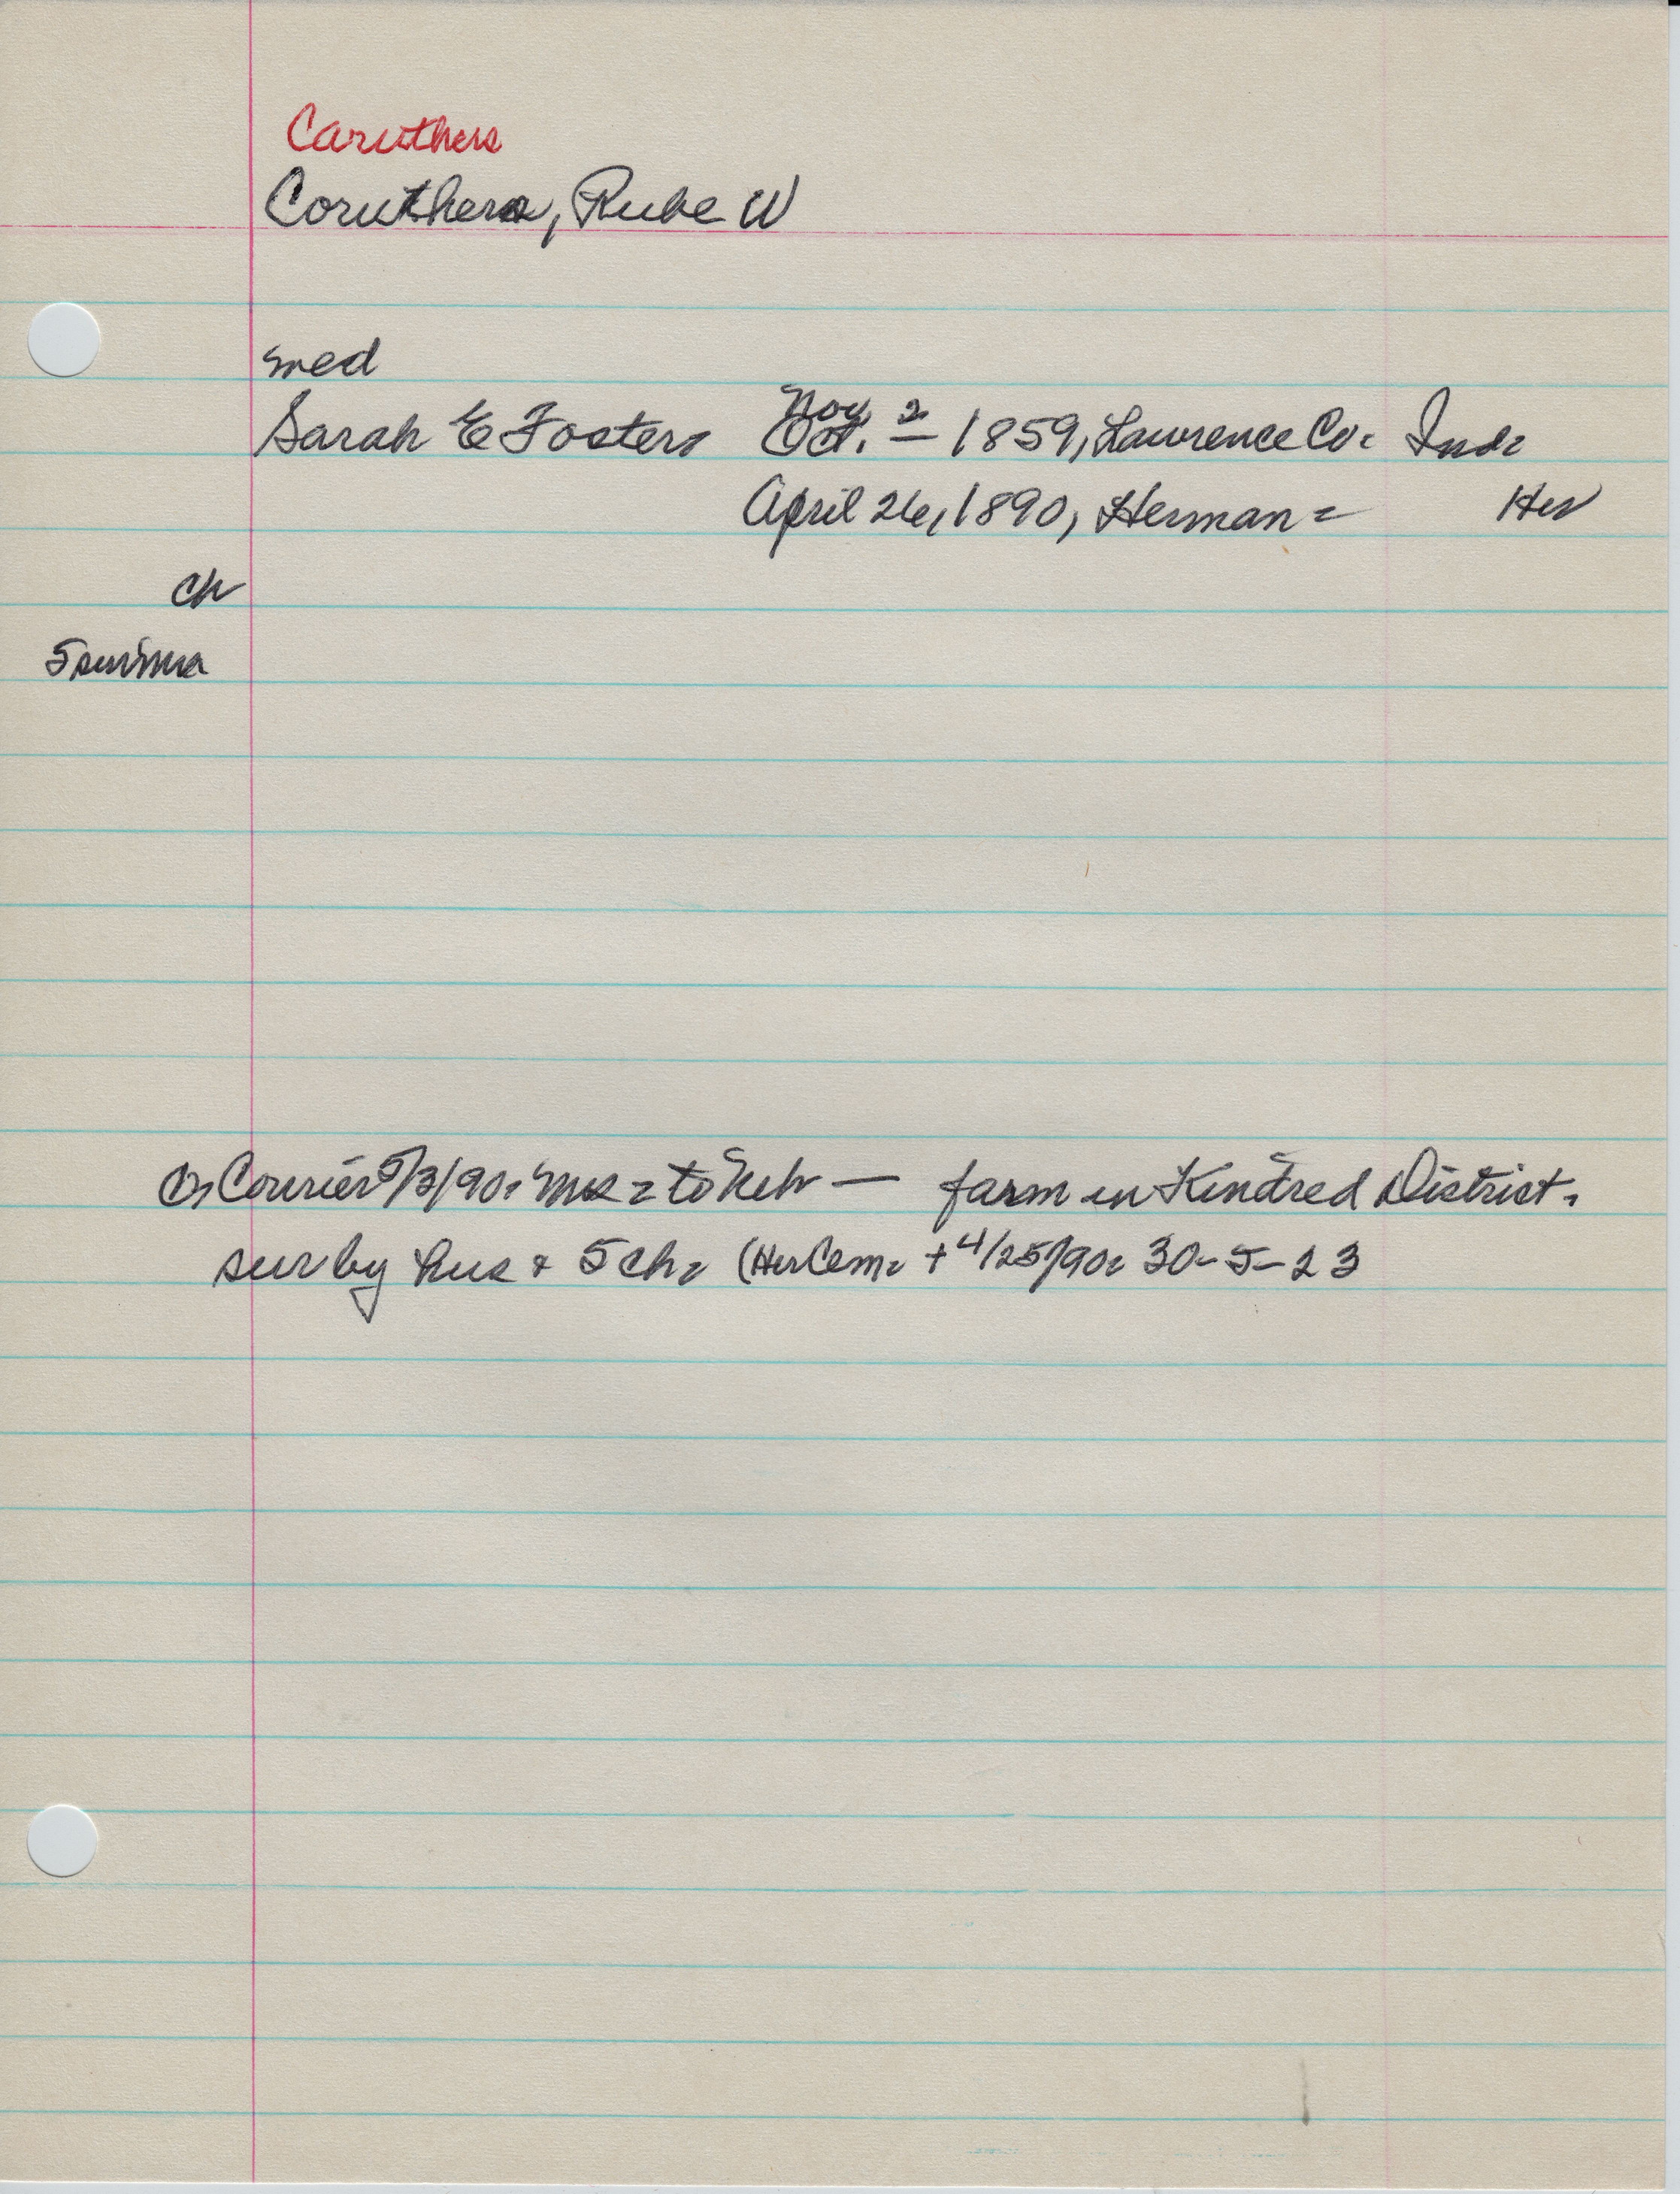 Caruthers
Coruthers, Rube W
med
Sarah E Fosters Nov. 2 Oct. — 1859, Lawrence Co. Ind.
April 26, 1890, Herman. Her
ch
5 sur ma
O, Courier 5/3/90. Mrs. to Neb — farm in Kindred District.
sur by hus + 5 ch. (Her Cem. + 4/25/90. 30-5-23